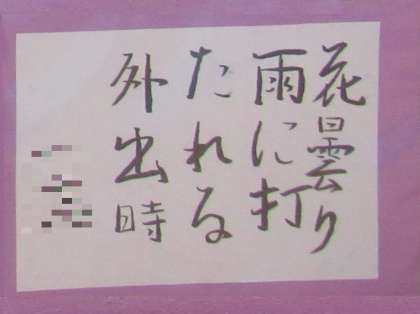 花曇り
雨に打
たれる
外出時